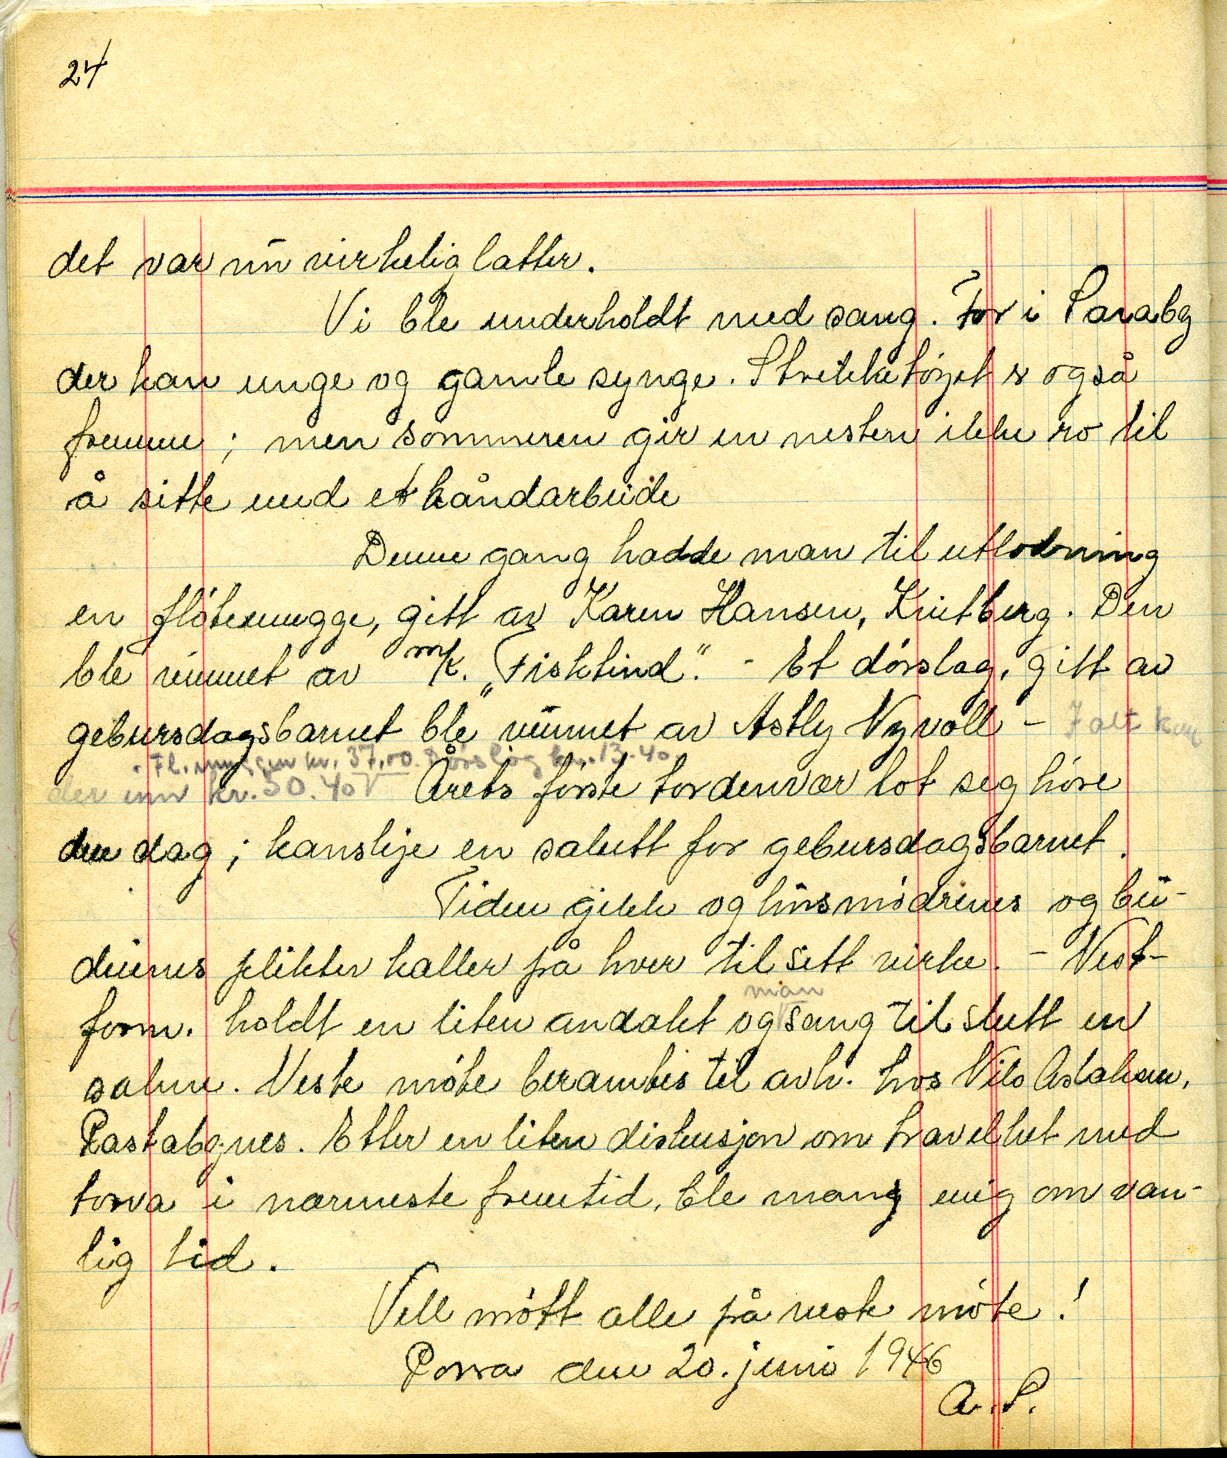 24
det var nu virkelig latter.
Vi ble underholdt med sang. For i Sarabg
der kan unge og gamle synge. Strikketöyet er også
fremme; men sommeren gir en nesten ikke ro til
å sitte med et håndarbeide
Denne gang hadde man til utlodning
en flötemugge, gitt av Karen Hansen, Knutberg. Den
ble vunnet av m/k. „Fisktind“. - Et dörslag, gitt av
gebursdagsbarnet ble vunnet av Astly Nyvoll - I alt kom
. Fl. muggen kr. 37,00. Dörslag kr. 13.40
der inn kr. 50.40 Årets förste tordenvær lot seg höre
den dag; kanskje en salutt for gebursdagsbarnet.
Tiden gikk og husmödrenes og bu-
deienes plikter kaller på hver til sitt virke. - Nest-
man
form. holdt en liten andakt og sang til slutt en
salme. Neste möte berammes til avh. hos Nils Aslaksen,
Rastabynes. Etter en liten diskusjon om travelhet med
torva i nærmeste fremtid, ble mang enig om van-
lig tid.
Vell mött alle på neste möte!
Porsa den 20. juni 1946
A. P.